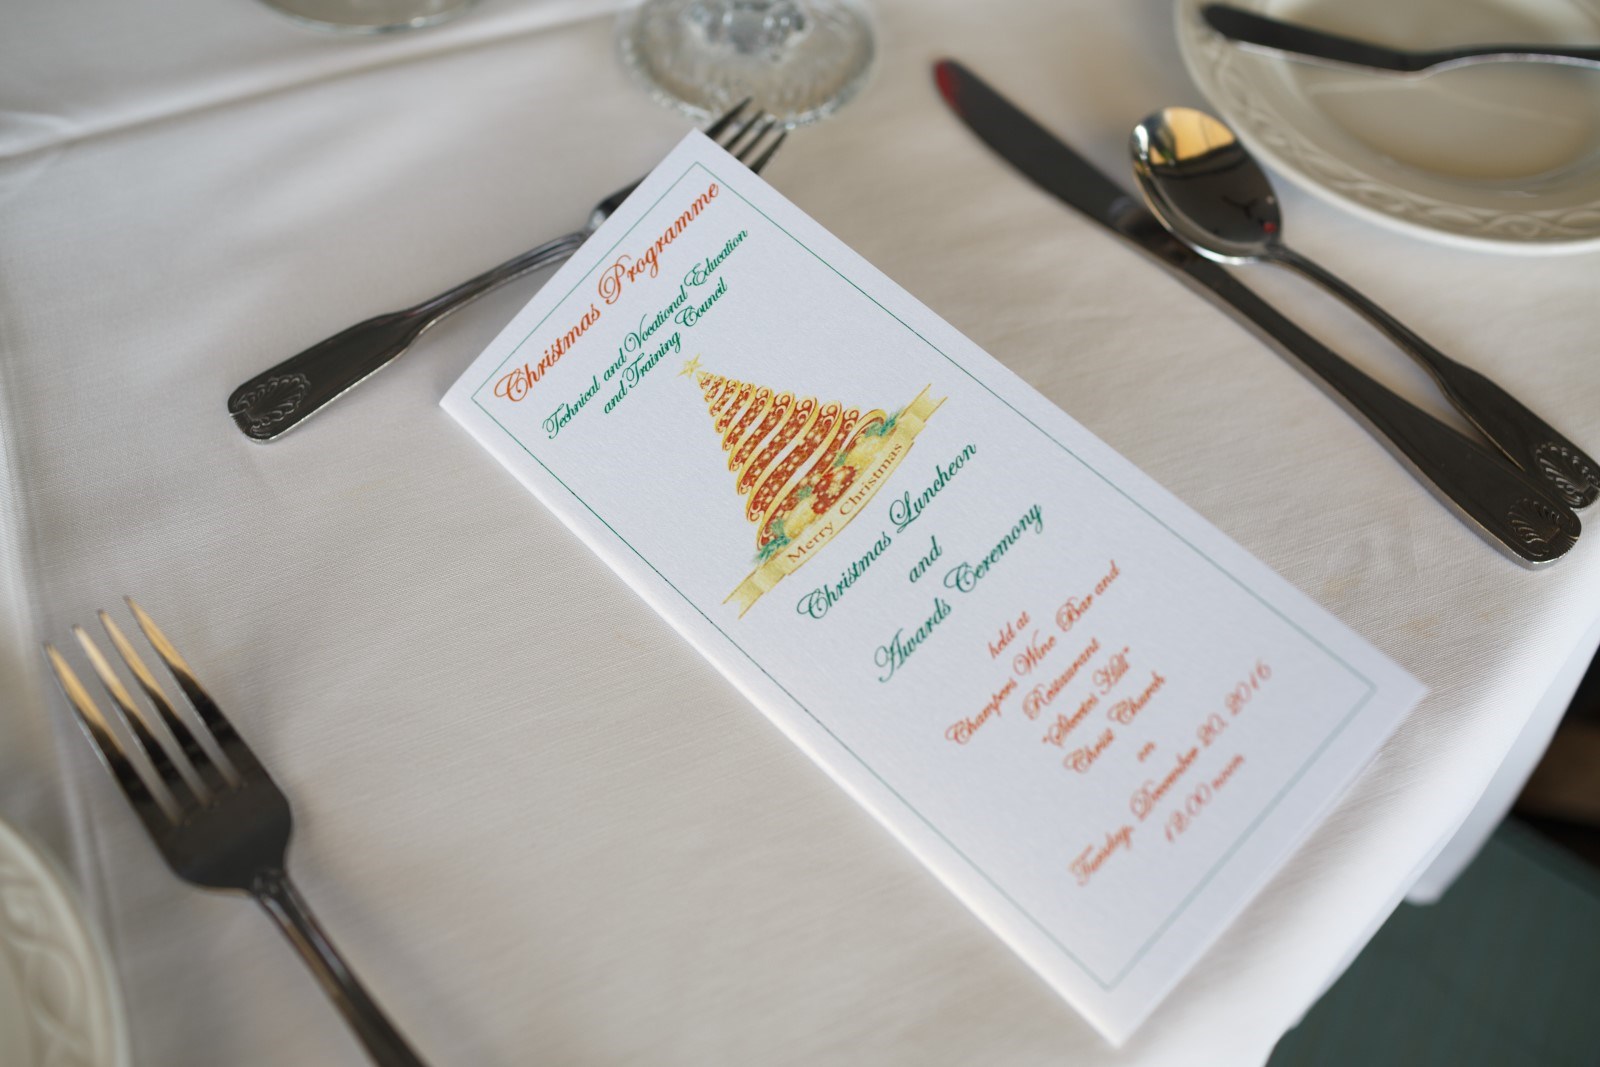 Christmas Programme
Technical and Vocational Education
and Training Council
Merry Christmas
Christmas Luncheon
and
Awards Ceremony
held at
Champers Wine Bar and
Restaurant
"Skeetes Hill"
Christ Church
on
Tuesday, December 20, 2016
12:00 noon